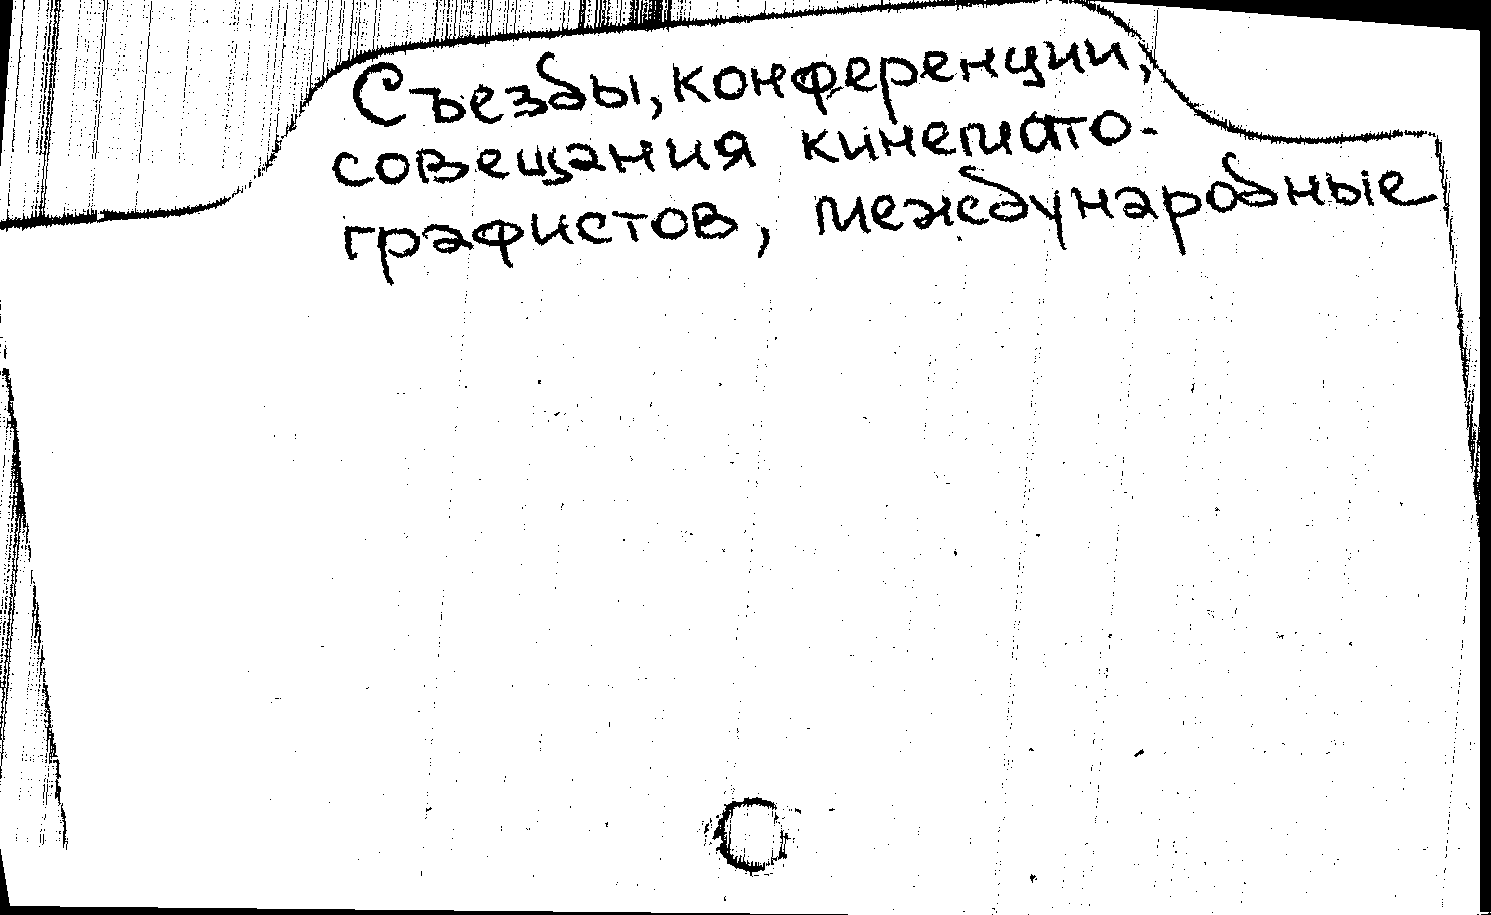 Съезды, конференции,
совещания кинемато-
графистов, международные